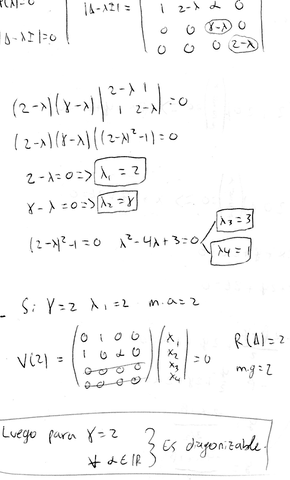 |A-λI| =
1 2-λ α 0
|A-λI|=0
0 0 γ-λ 0
0 0 0 2-λ
(2-λ)(γ-λ) |2-λ 1
1 2-λ| =0
(2-λ)(γ-λ)((2-λ)²-1)=0
2-λ=0=> λ₁=2
γ-λ=0=> λ₂=γ
(2-λ)²-1=0 λ²-4λ+3=0 λ3=3
λ4=1
Si γ=2 λ₁=2 m.a=2
V(2) = (0 1 0 0
1 0 α 0
0 0 0 0
0 0 0 0) (x₁
x₂
x₃
x₄) =0 R(A)=2
m.g=2
Luego para γ=2
∀ α∈IR } Es diagonizable.